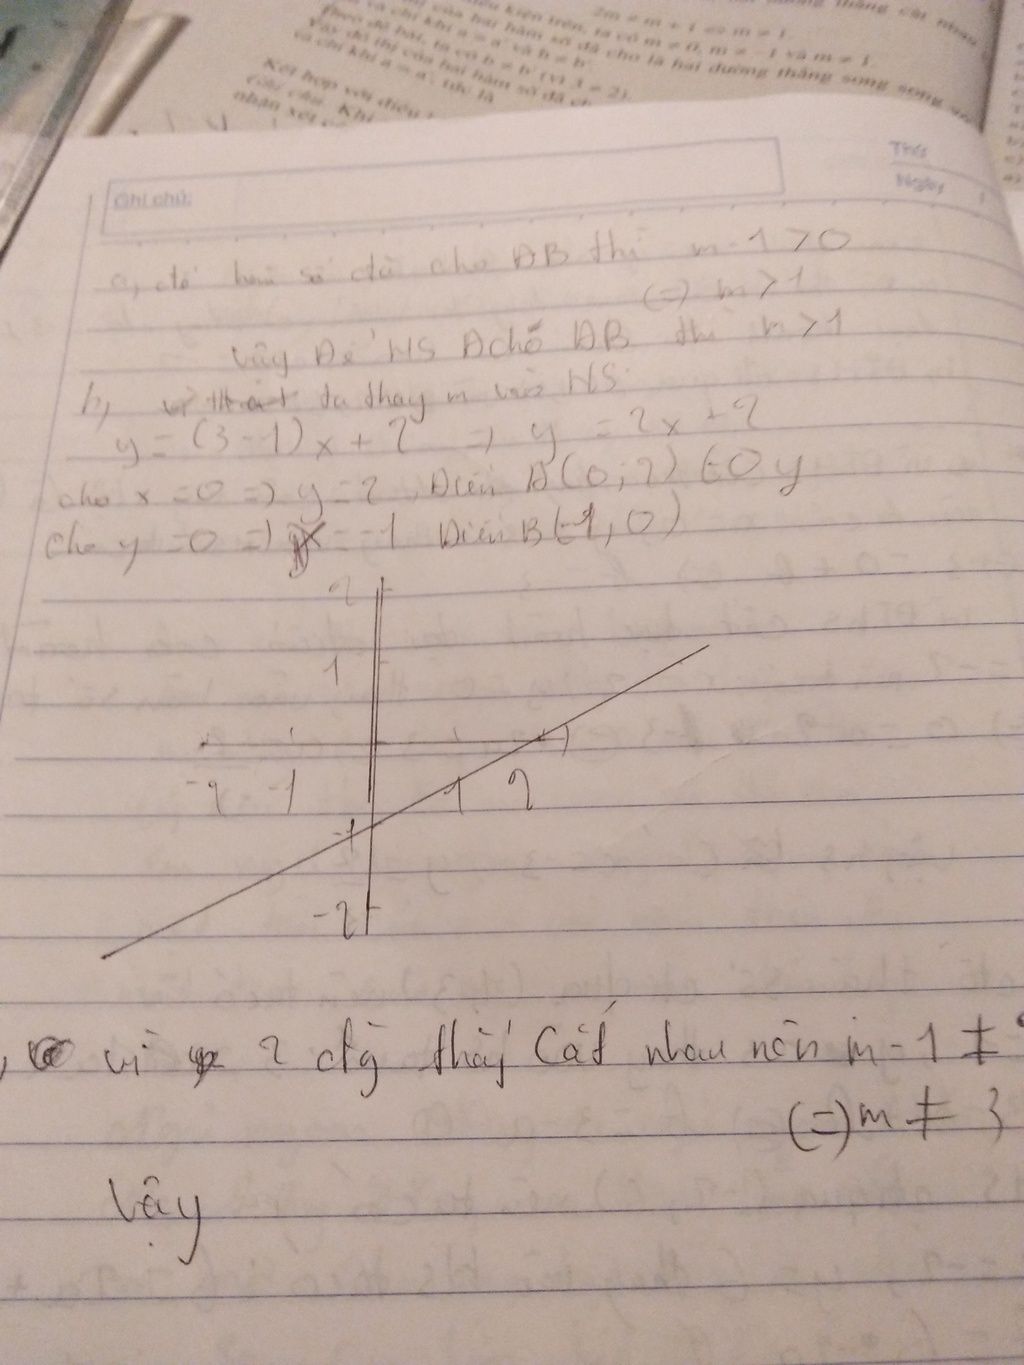 2m ≠ m + 1 ⇔ m ≠ 1.
kiện trên, ta có m ≠ 0, m ≠ -1 và m ≠ 1.
của hai hàm số đã cho là hai đường thẳng song song
và chỉ khi a = a' và b ≠ b'
Theo đề bài, ta có b ≠ b' (vì 3 ≠ 2).
Vậy đồ thị của hai hàm số đã
và chỉ khi a = a', tức là
Kết hợp với điều
Khi
nhận xét
Thứ
Ngày
Ghi chú:
a, để hàm số đã cho ĐB thì m-1 > 0
(=) m > 1
Vậy Để HS Đchố ĐB thì m > 1
b, ta thay m vào HS
y = (3-1)x + 2 => y = 2x + 2
cho x = 0 => y = 2, Điểm A(0; 2) ∈ Oy
cho y = 0 => x = -1 Điểm B(-1, 0)
2
1
-2 -1 1 2
-1
-2
vì 2 đg thẳg cắt nhau nên m-1 ≠
(=) m ≠ 3
Vậy